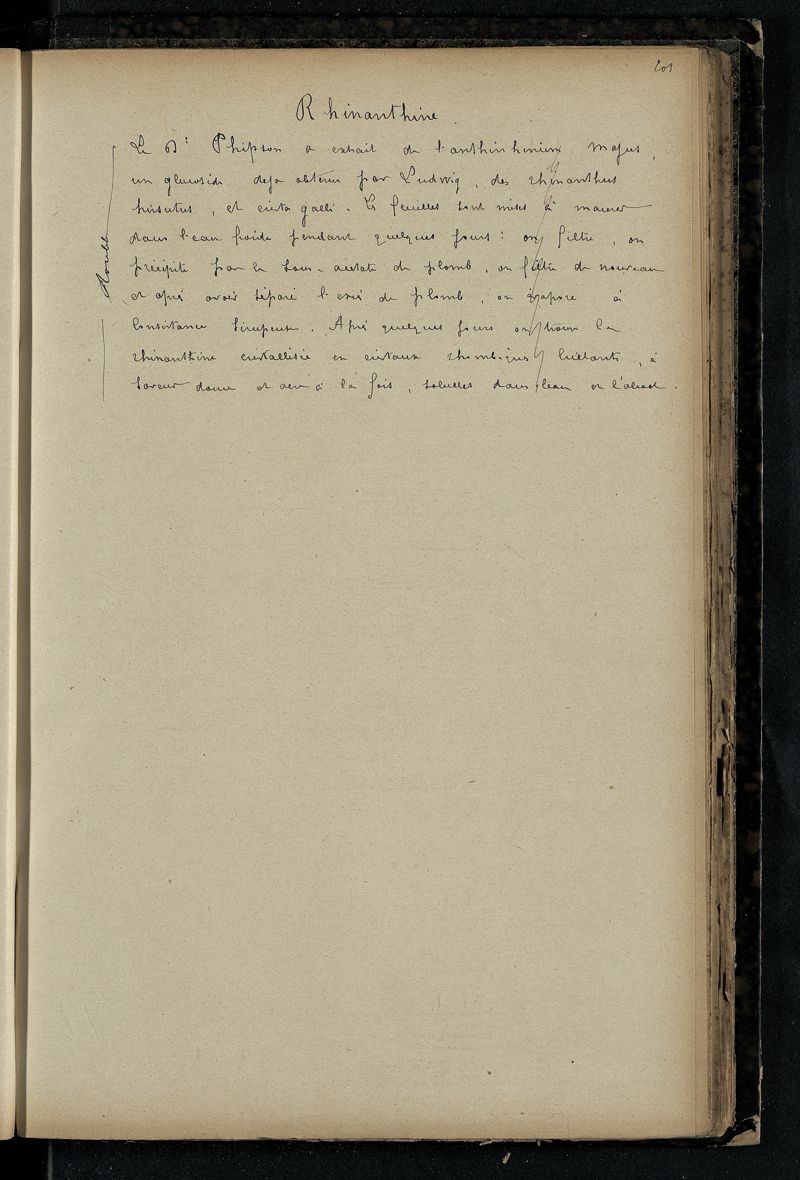 Rhinanthine.
Le Dr Phipson a extrait de l'anthinhinium majus,
un glucoside deja obtenu par Ludwig, des rhinanthus
hirsutus, et crista galli. Les feuilles sont mises à macerer
dans l'eau froide pendant quelques jours : on filtre, on
précipite par le sous-acetate de plomb, on filtre de nouveau
et après avoir séparé l'excès de plomb, on évapore à
Consistance sirupeuse. Après quelques jours on trouve la
rhinanthine cristallisée en cristaux rhombiques brillants, à
saveur douce et acre à la fois, solubles dans l'eau et l'alcool.
double